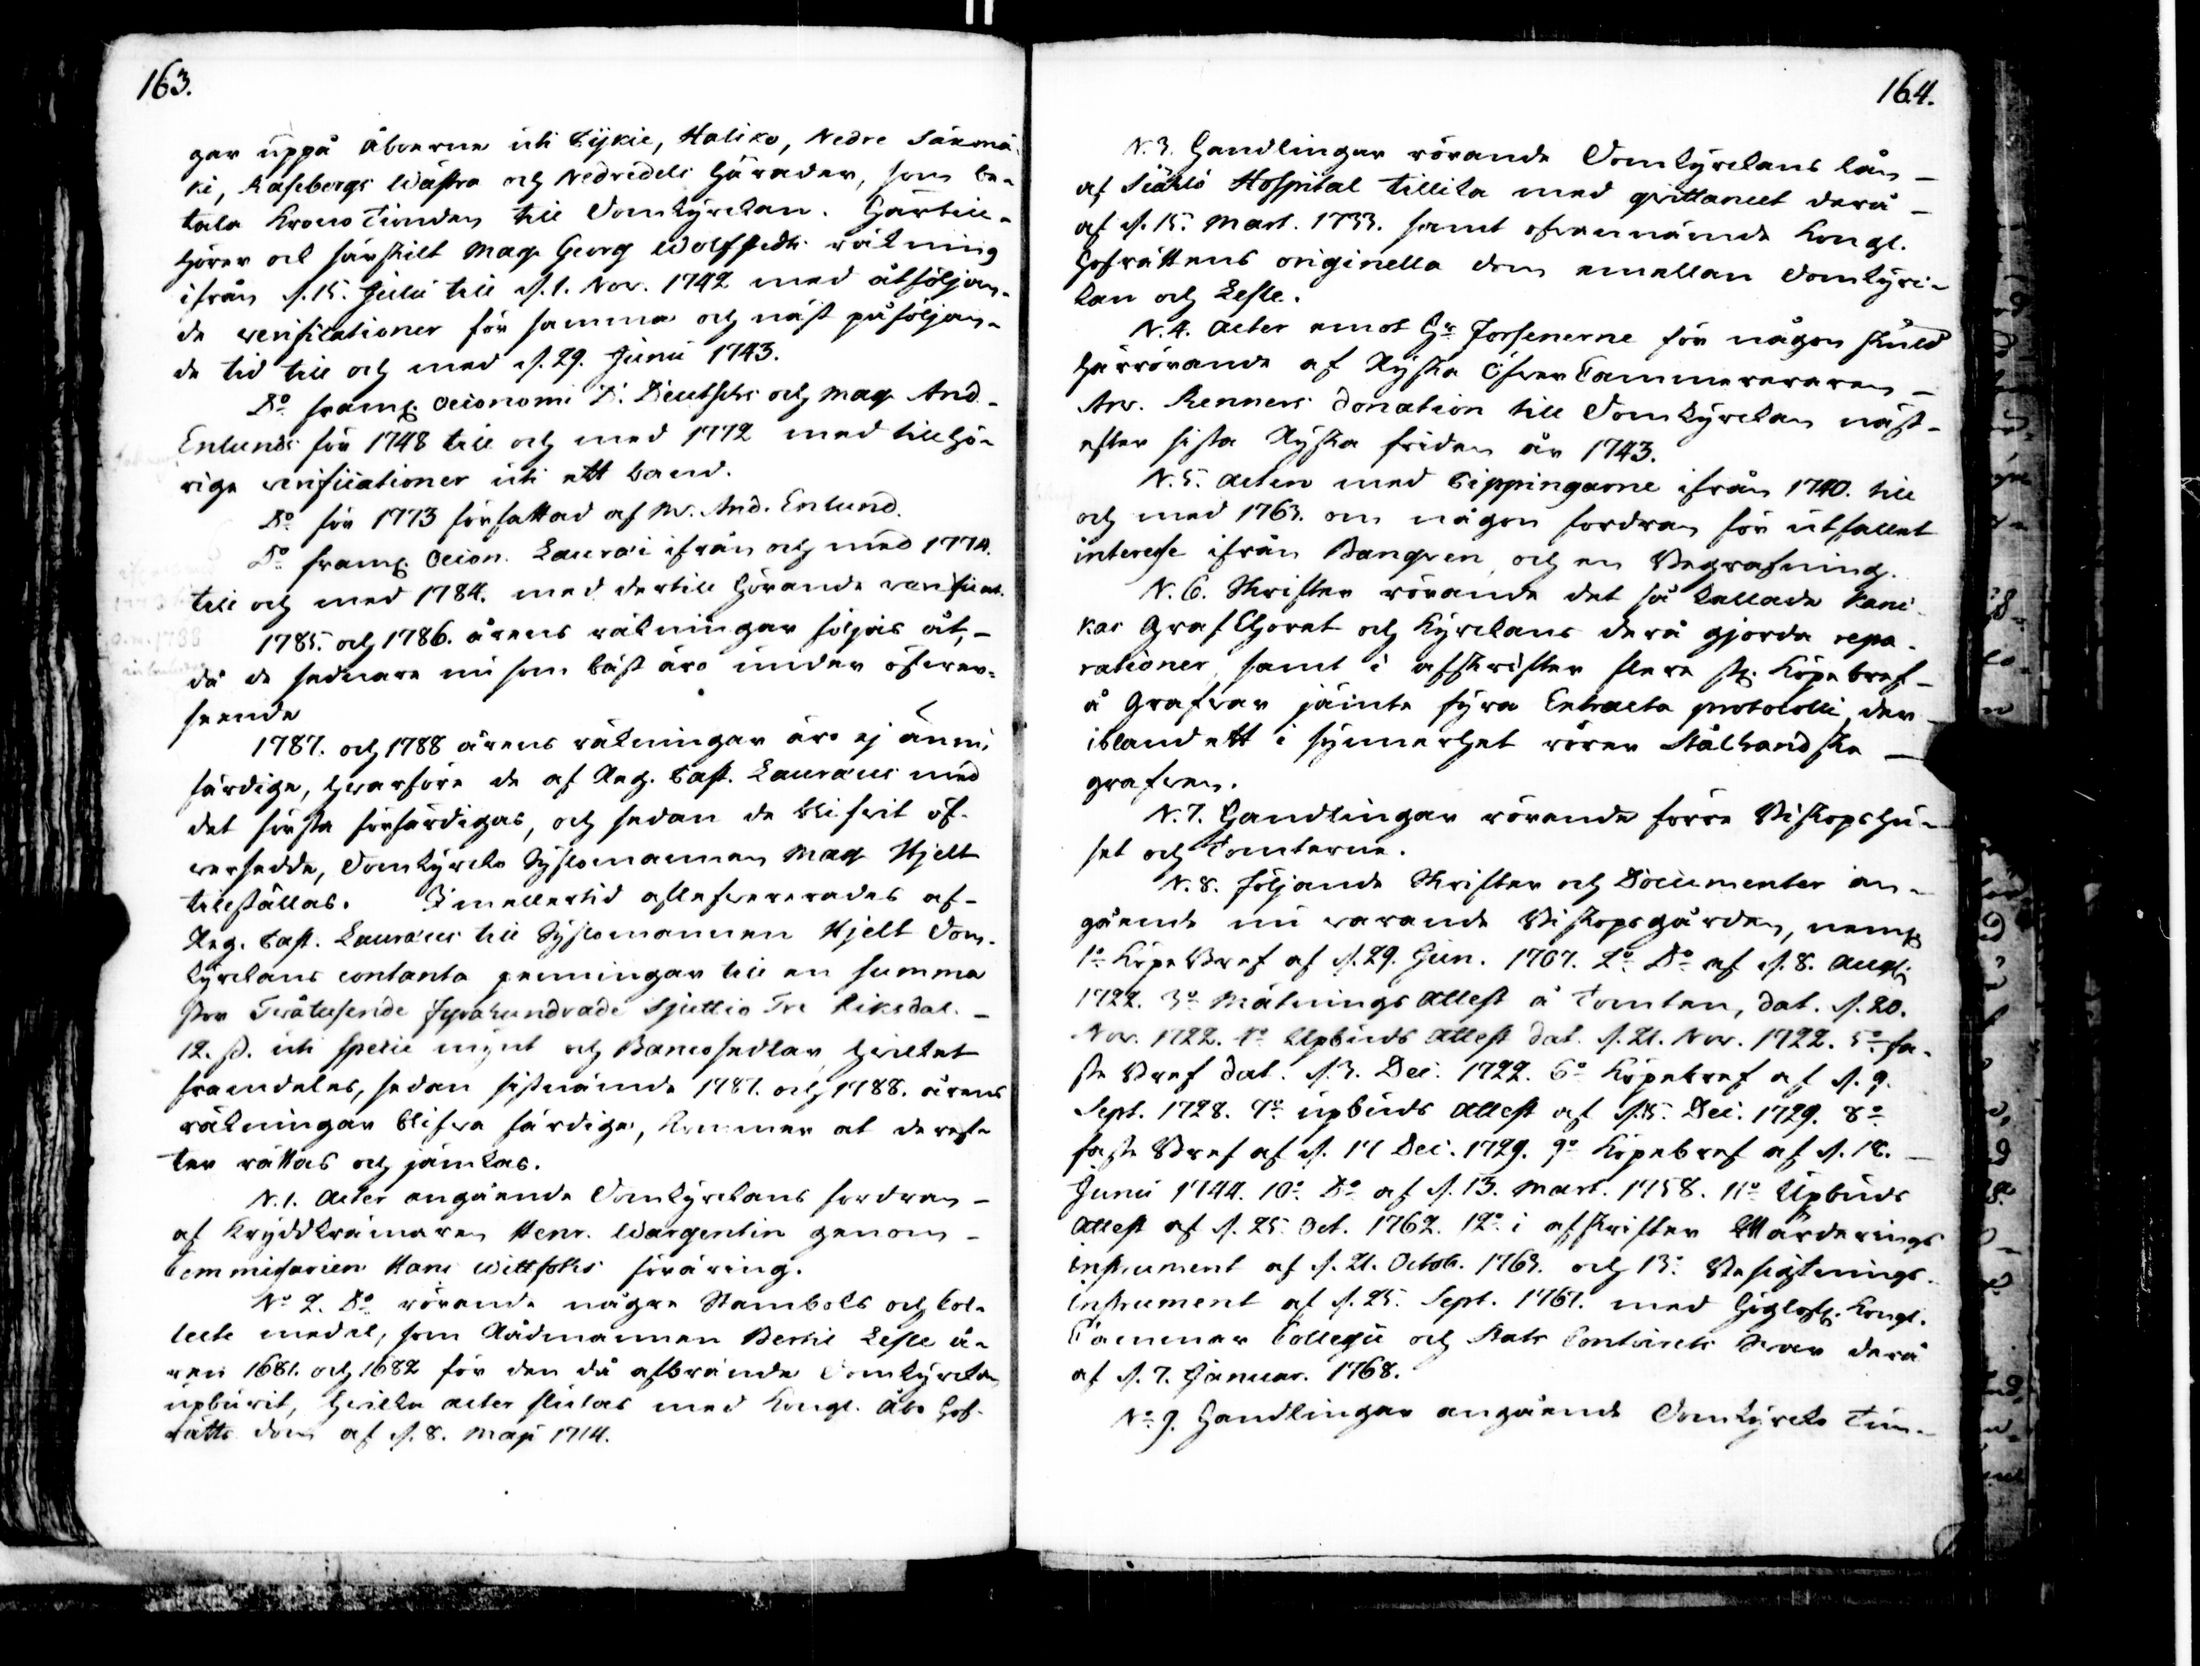 163.
gar uppå åboerne uti Pijkie, Haliko, Nedre Säxmä-
ki, Raseborgs Wästra och Nedredels härader, som be-
tala Krono Tionden till Domkyrckan. Härtill-
hörer ock särskilt Mag. Georg Wolfstedts räkning
ifrån d. 15. Julii till d. 1. Nov. 1742 med åtföljan-
de verificationer för samma och näst påföljan-
de tid till och med d. 29. Junii 1743.
D:o framl. Oeconomi D. Deutschs och Mag. And.
Enlunds för 1748 till och med 1772 med tillhö-
rige verificationer uti ett band.
D:o för 1773 författad af M. And. Enlund.
D:o framl. Oecon. Lauræi ifrån och med 1774.
till och med 1784. med dertill hörande verificat.
1785. och 1786. årens räkningar följas åt,
då de sednare nu som bäst äro under öfwer-
seende
1787. och 1788 årens räkningar äro ej ännu
färdige, hwarföre de af Reg. Past. Lauræus med
det första förfärdigas, och sedan de blifwit öf-
wersedde, Domkyrcko Sysslomannen Mag. Hjelt
tillställas. Imellertid aflefwererades af
Reg. Past. Lauræus till Sysslomannen Hjelt Dom-
kyrckans contanta penningar till en summa
stor Twåtusende Fyrahundrade Sjuttio Tre Riksdal.
12. s. uti specie mynt och Bancosedlar, hwilket
framdeles, sedan sistnämde 1787. och 1788. årens
räkningar blifwa färdige, kommer at derefter
ter rättas och jämkas.
N. 1. Acter angående Domkyrckans fordran
af Kryddkrämaren Henr. Wargentin genom
Commissarien Hans Wittfohs föräring.
N:o 2. D:o rörande någre Stambols och Col-
lecte medel, som Rådmannen Bertil Lesle å-
ren 1681. och 1682 för den då afbrände Domkyrckan
upburit, hwilka acter slutas med Kongl. Åbo Hof-
rätts dom af d. 8. Maji 1714.
164.
N. 3. Handlingar rörande Domkyrckans lån
af Siählö Hospital tillika med qvittancet derå
af d. 15. Mart. 1733. samt ofwannämde Kongl.
Hofrättens originella dom emellan Domkyrc-
kan och Lesle.
N. 4. Acter emot Hr Forsenerne för någon skuld
härrörande af Ryska Öfwer Cammereraren
Arv. Renners donation till Domkyrckan näst-
efter sista Ryska friden år 1743.
N. 5. Acten med Pippingarne ifrån 1740. till
och med 1763. om någon fordran för utfallet
interesse ifrån Banqven, och en Begrafning.
N. 6. Skrifter rörande det så kallade Kani-
kas GrafChoret och Kyrckans derå gjorda repa-
rationer, samt i afskrifter flere st. Köpebref
å Grafwar jämte fyra Extracta protocolli, der-
ibland ett i synnerhet rörer Stålhandska
grafwen.
N. 7. Handlingar rörande förre Biskopshu-
set och Tomterne.
N. 8. Följande Skrifter och Documenter an-
gående nu warande Biskopsgården, neml.
1:o Köpe Bref af d. 29. Jun. 1707. 2:o D:o af d. 8. Aug.
1722. 3:o Mätnings Attest å Tomten, dat. d. 20.
Nov. 1722. 4:o Upbuds Attest dat. d. 21. Nov. 1722. 5:o Fa-
ste Bref dat. d. 3. Dec. 1722. 6:o Köpebref af d. 9.
Sept. 1728. 7:o upbuds Attest af d. 15. Dec. 1729. 8:o
faste Bref af d. 17 Dec. 1729. 9:o Köpebref af d. 18.
Junii 1744. 10:o D:o af d. 13. Mart. 1758. 11:o Upbuds
Attest af d. 25. Oct. 1762. 12:o i afskrifter Wärderings
Instrument af d. 21. Octob. 1763. och 13:o Besigtnings-
Instrument af d. 25. Sept. 1767. med Högloft. Kongl.
Cammar Collegii och Stats Contoirets Swar derå
af d. 7. Januar. 1768.
N:o 9. Handlingar angående Domkyrcko Tun-